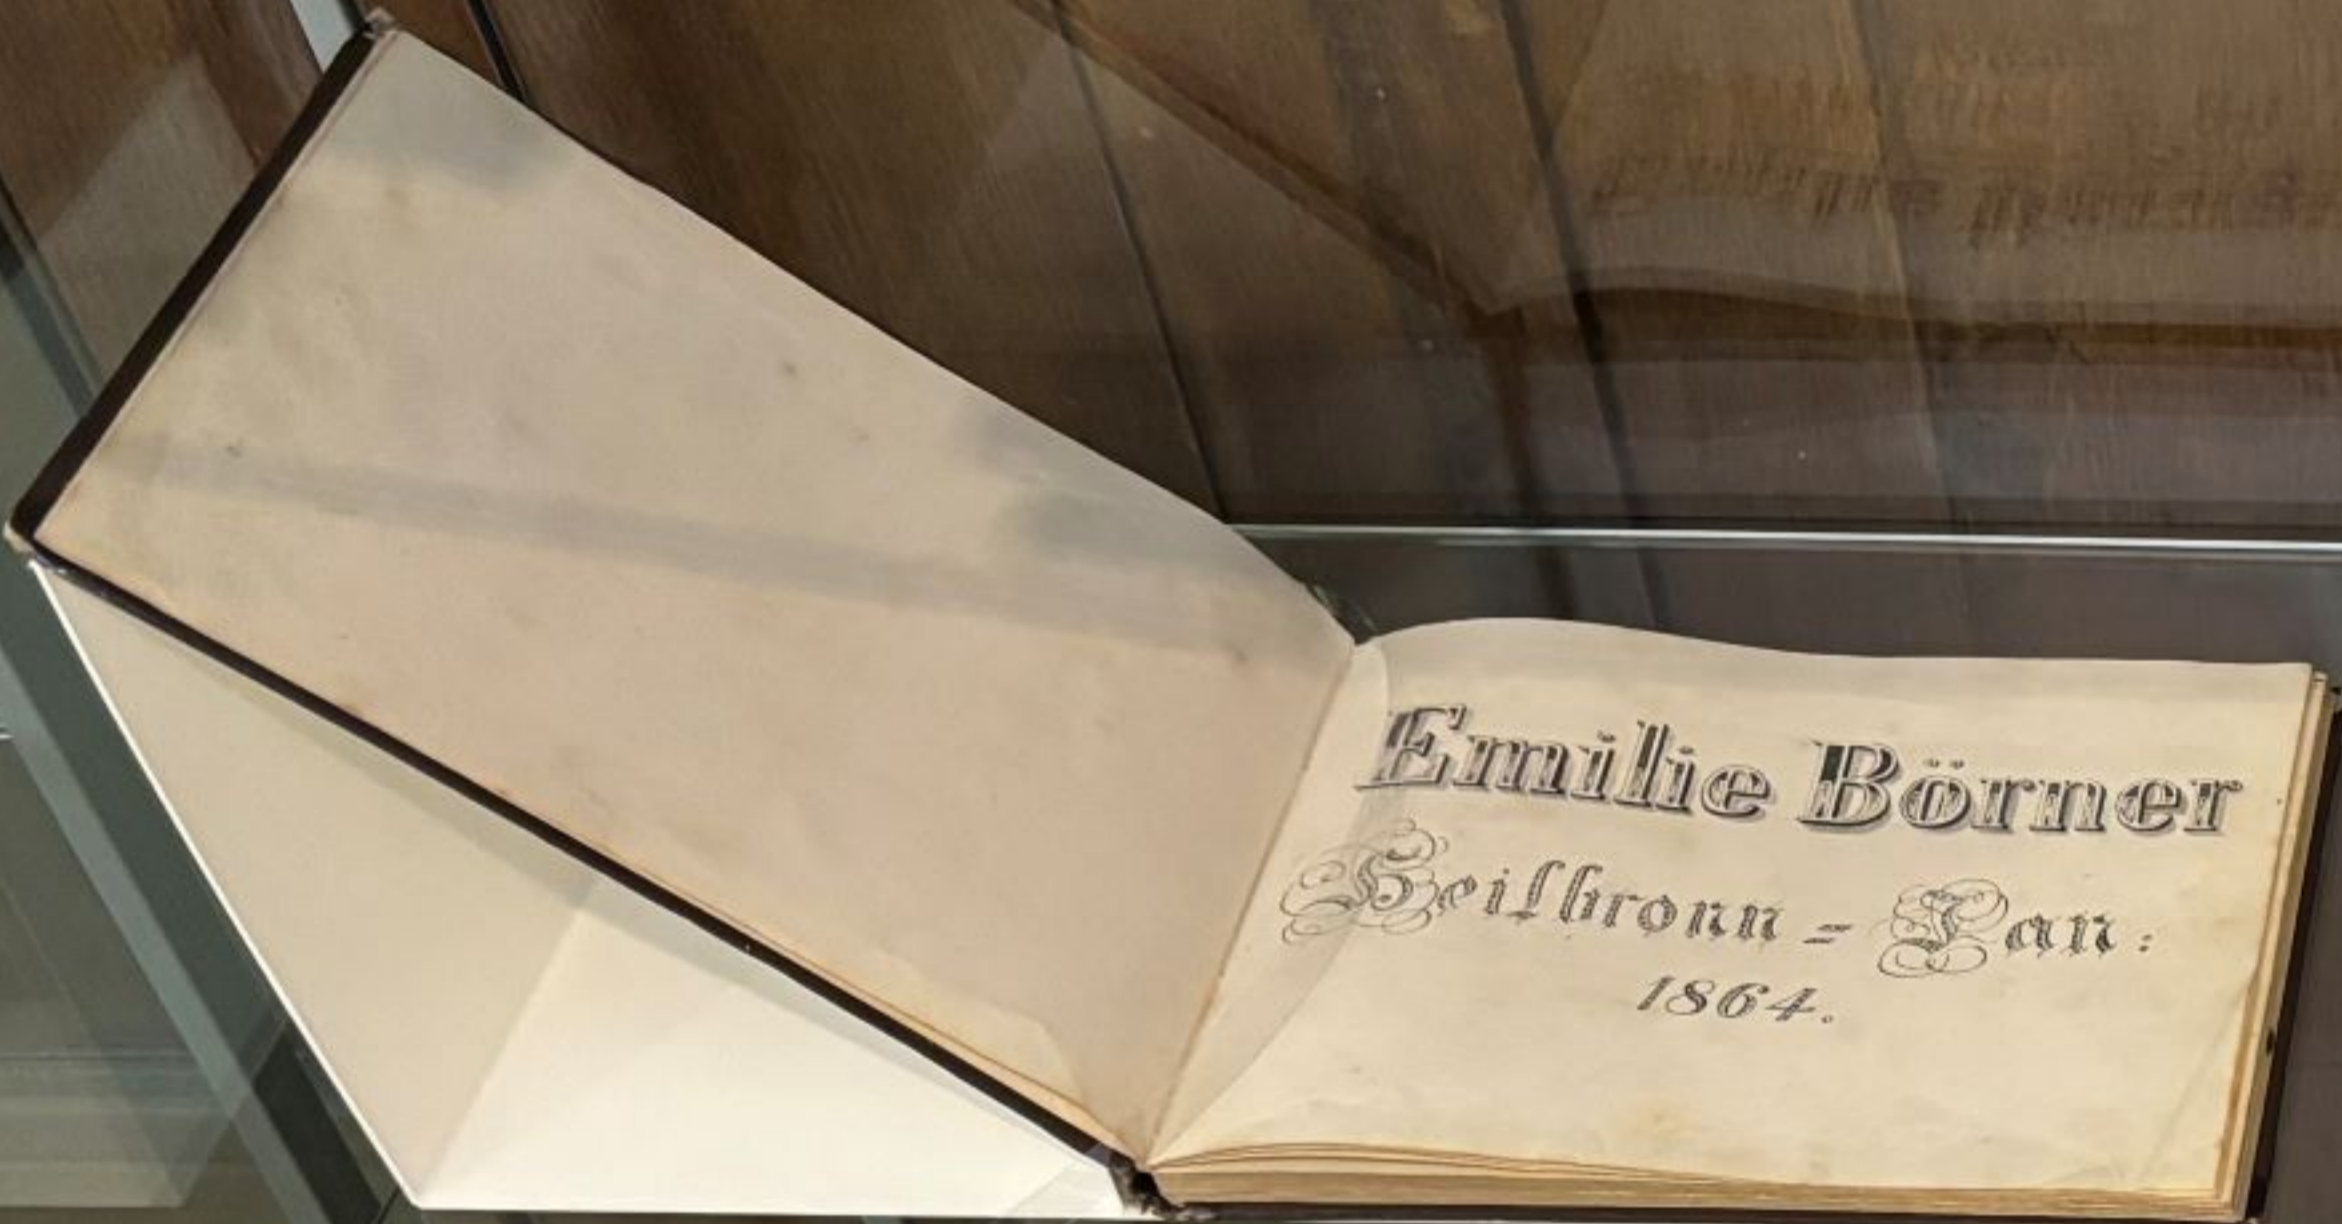 Emilie Börner
Heilbronn = Jan:
1864.